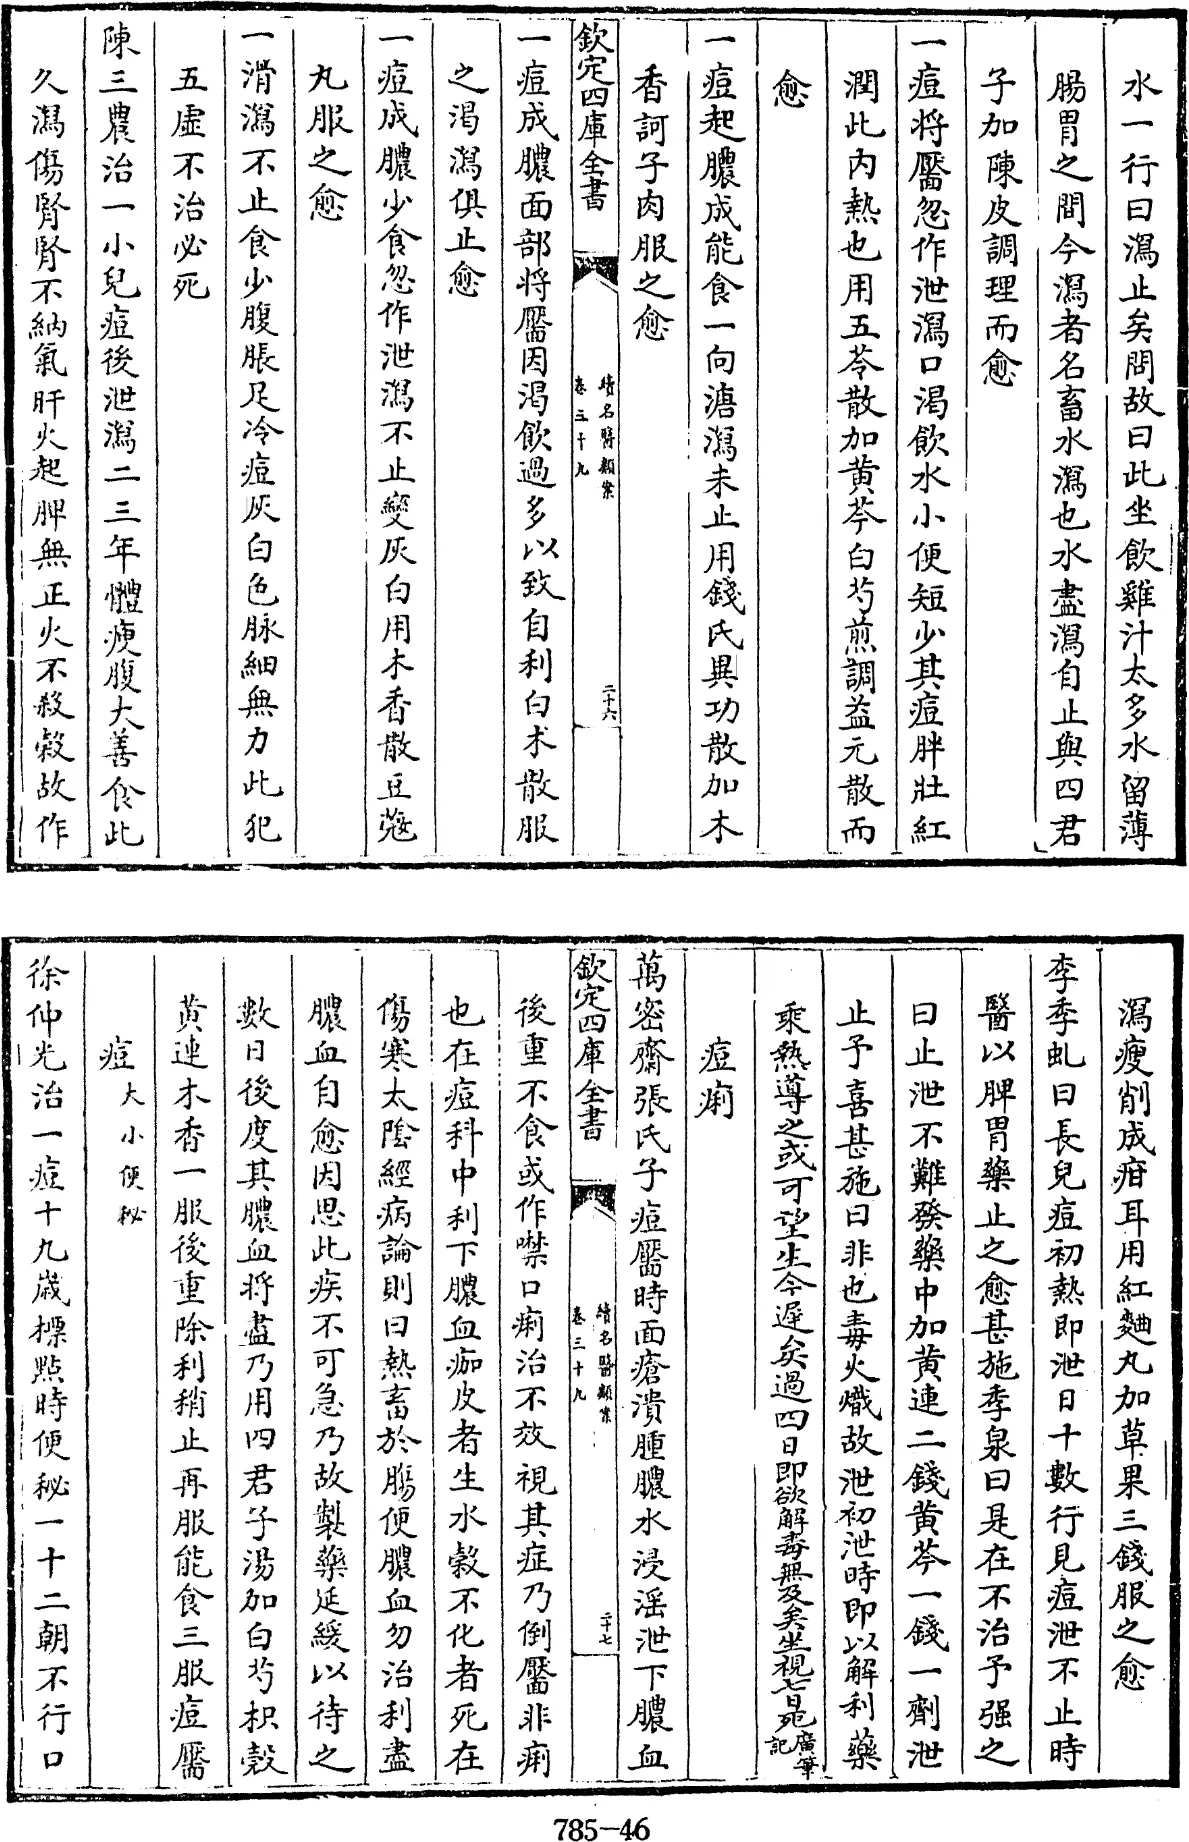 水一行曰瀉止矣問故曰此坐飲雞汁太多水留薄
腸胃之間今瀉者名畜水瀉也水盡瀉自止與四君
子加陳皮調理而愈
一痘將靨忽作泄瀉口渴飲水小便短少其痘胖壯紅
潤此內熱也用五苓散加黄芩白芍煎調益元散而
愈
一痘起膿成能食一向溏瀉未止用錢氏異功散加木
香訶子肉服之愈
欽定四庫全書
續名醫類案
卷三十九
二十六
一痘成膿面部將靨因渴飲過多以致自利白术散服
之渴瀉俱止愈
一痘成膿少食忽作泄瀉不止變灰白用木香散豆蔻
丸服之愈
一滑瀉不止食少腹脹足冷痘灰白色脉細無力此犯
五虛不治必死
陳三農治一小兒痘後泄瀉二三年體瘦腹大善食此
久瀉傷腎腎不納氣肝火起脾無正火不殺榖故作
瀉瘦削成疳耳用紅麯丸加草果三錢服之愈
李季虬曰長兒痘初熱即泄日十數行見痘泄不止時
醫以脾胃藥止之愈甚施季泉曰是在不治予强之
曰止泄不難發藥中加黄連二錢黄芩一錢一劑泄
止予喜甚施曰非也毒火熾故泄初泄時即以解利藥
乘熱導之或可望生今遲矣過四日即欲解毒無及矣坐視七日死廣筆
記
痘痢
萬密齋張氏子痘靨時面瘡潰腫膿水浸淫泄下膿血
欽定四庫全書
續名醫類案
卷三十九
二十七
後重不食或作噤口痢治不效視其症乃倒靨非痢
也在痘科中利下膿血痂皮者生水榖不化者死在
傷寒太陰經病論則曰熱畜於腸便膿血勿治利盡
膿血自愈因思此疾不可急乃故製藥延緩以待之
數日後度其膿血將盡乃用四君子湯加白芍枳殼
黄連木香一服後重除利稍止再服能食三服痘靨
痘大小便秘
徐仲光治一痘十九歲標點時便秘一十二朝不行口
785-46